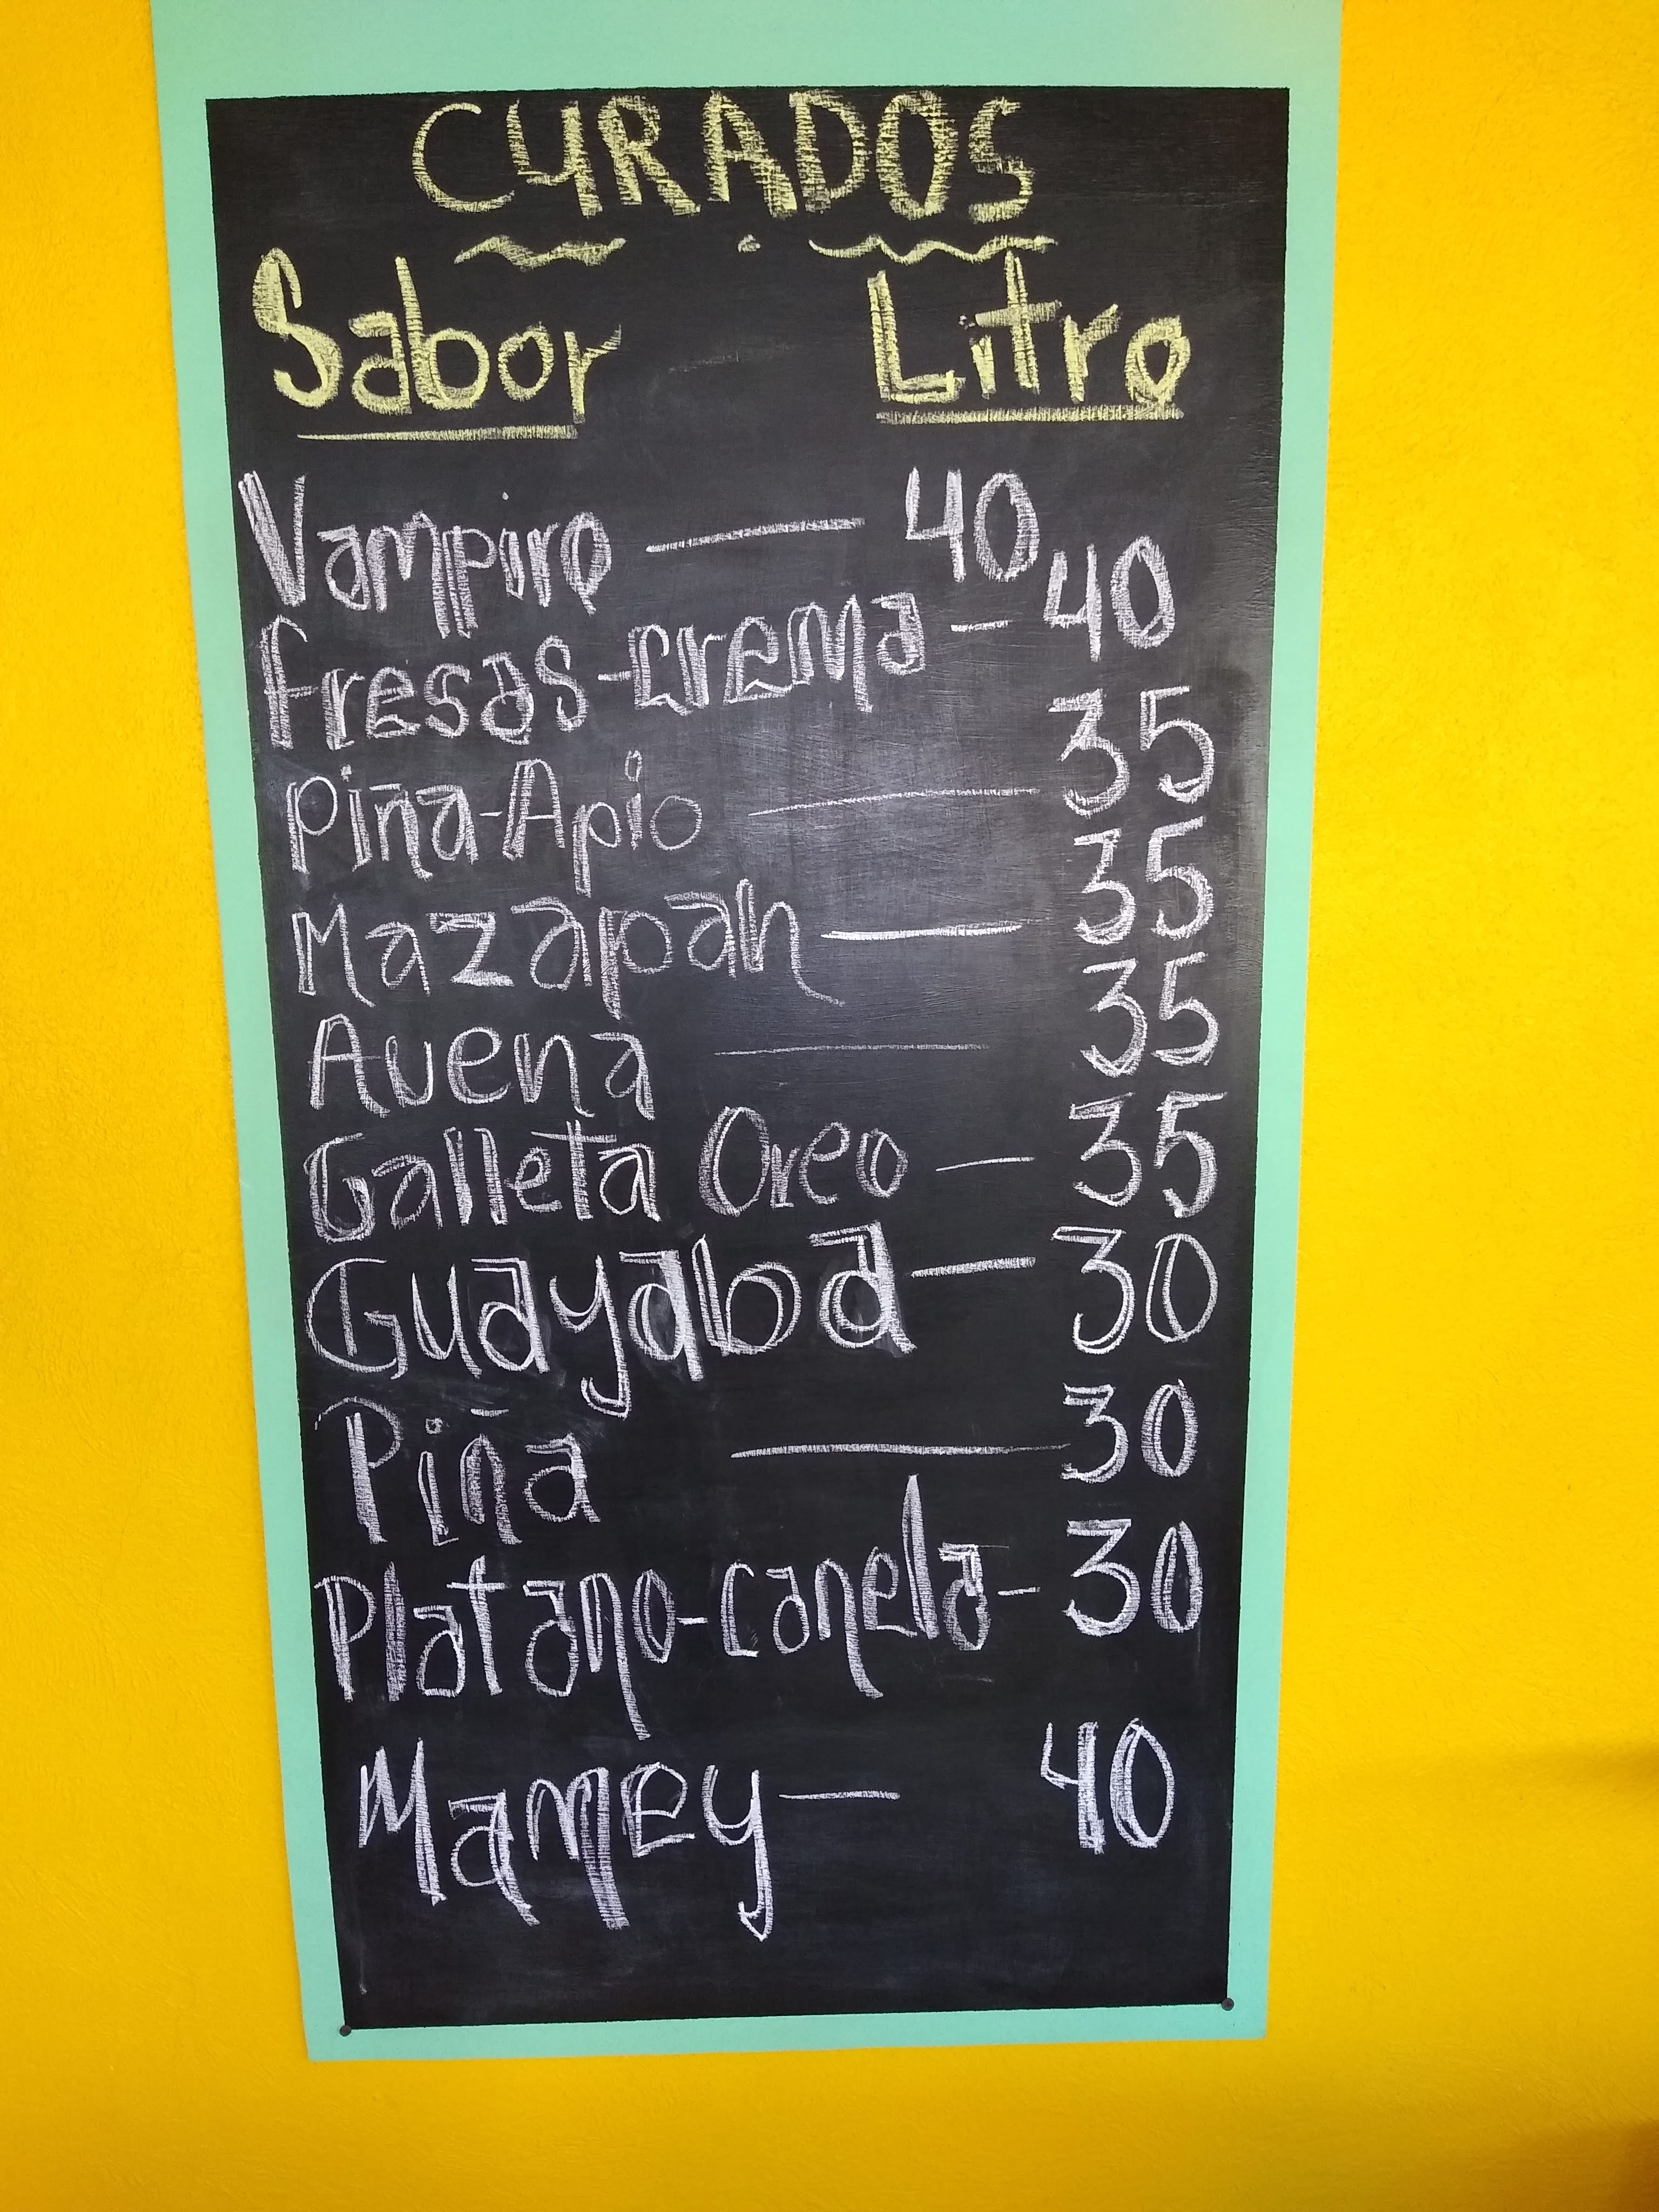 CURADOS
Sabor Litro
Vampiro — 40
fresas-crema - 40
piña-Apio — 35
Mazapan — 35
Avena — 35
Galleta Oreo — 35
Guayaba — 30
Piña — 30
Platano-canela - 30
Mamey — 40